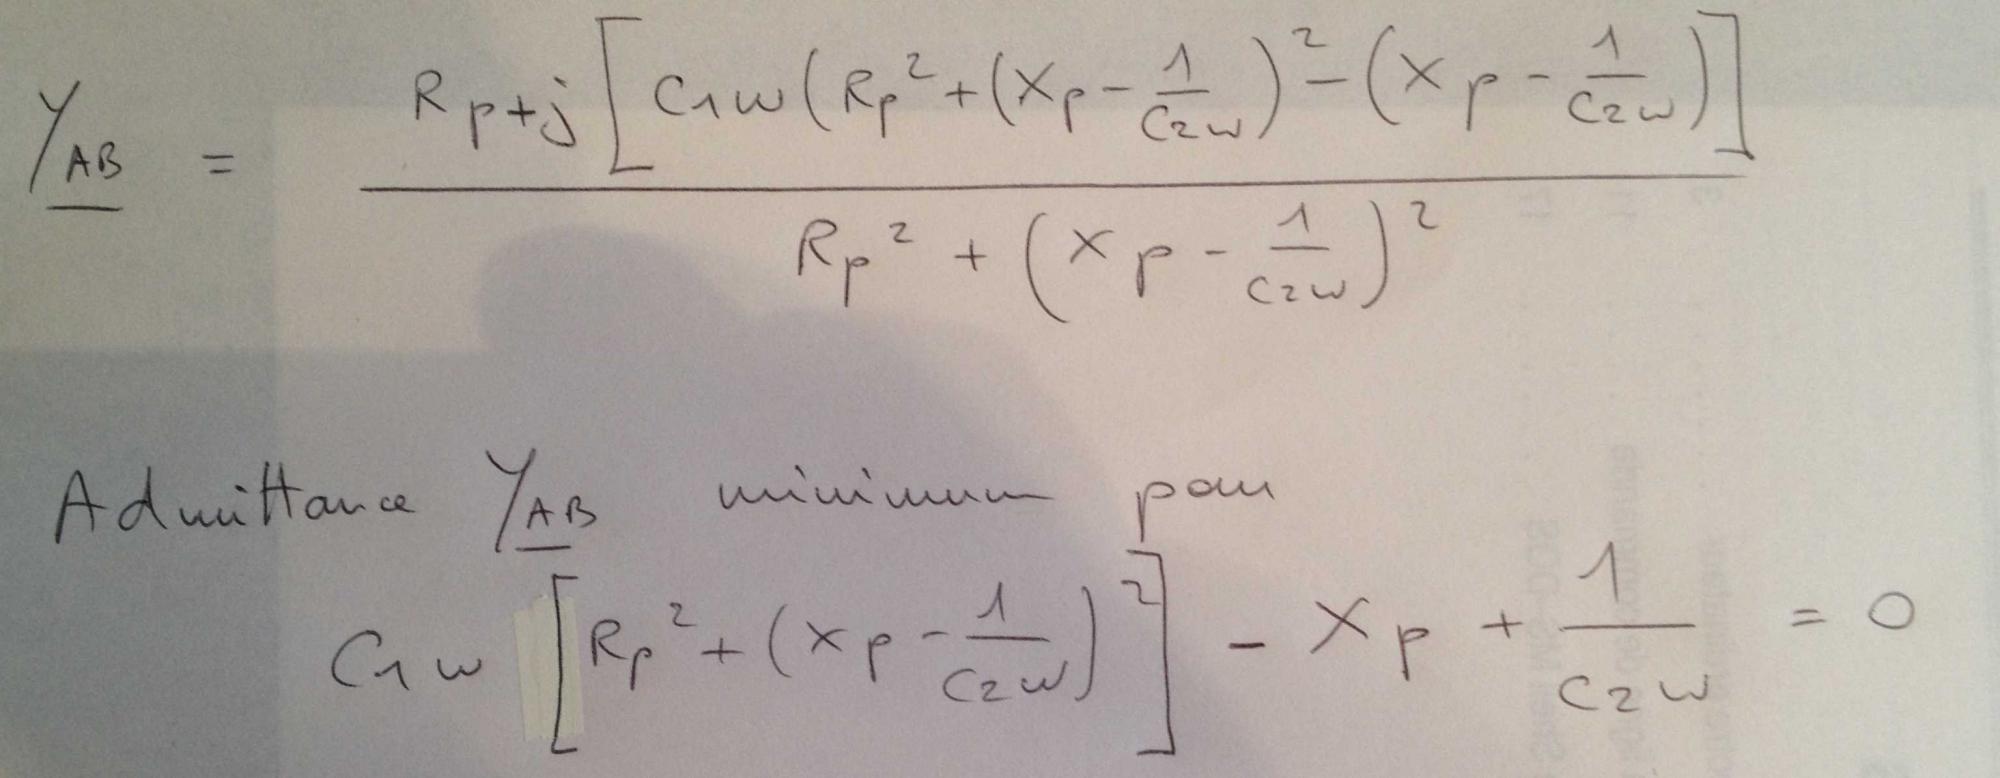 Y_AB = (R_p + j [ C₁ω ( R_p² + (X_p - 1/(C₂ω) )² - (X_p - 1/(C₂ω)) ]) / (R_p² + (X_p - 1/(C₂ω))²)
Admittance Y_AB minimum pour
C₁ω [ R_p² + (X_p - 1/(C₂ω))² ] - X_p + 1/(C₂ω) = 0